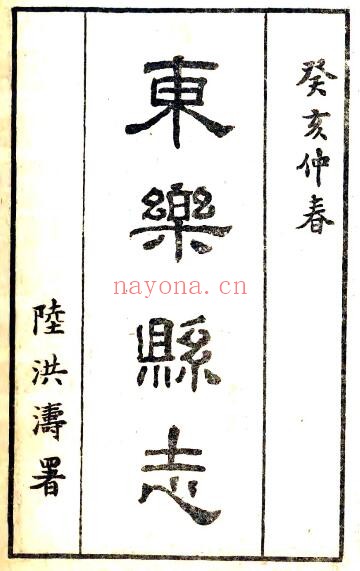 癸亥仲春
東樂縣志
陸洪濤署
nayona.cn